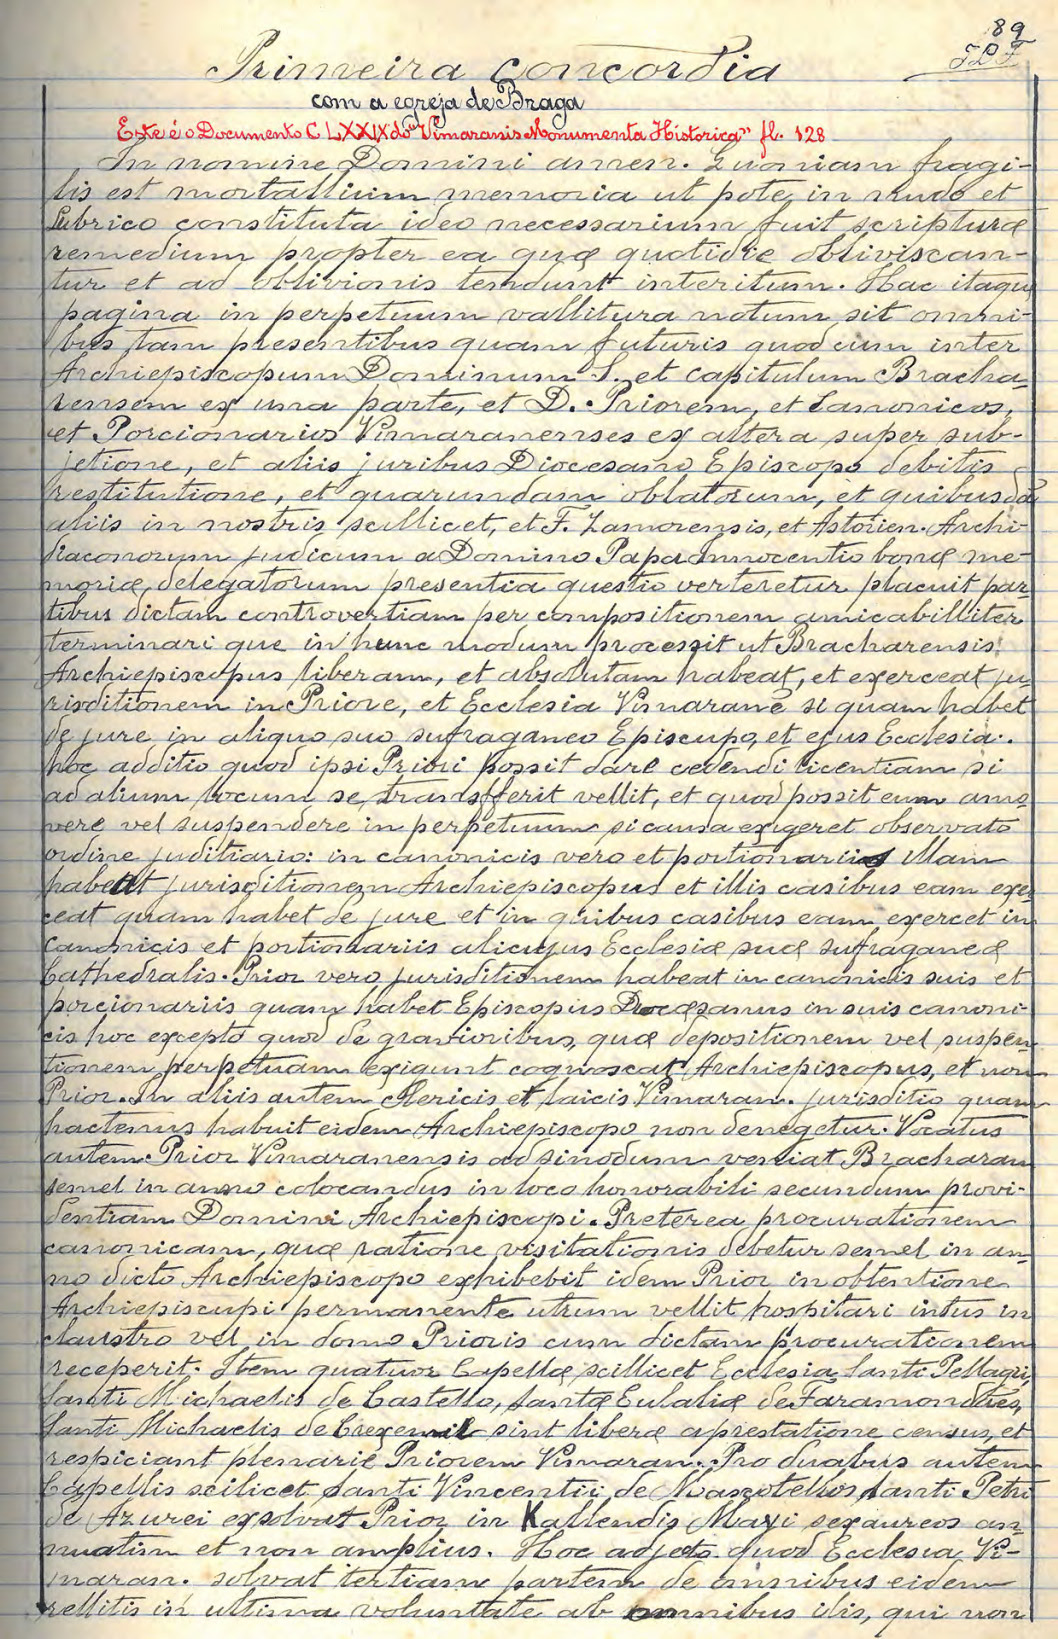 89
Primeira concordia
com a egreja de Braga
Este é o Documento CLXXIX do "Vimaranis Monumenta Historica" fl. 128
In nomine Domini amen. Quoniam fragi-
lis est mortallium memoria ut pote in nudo et
lubrico constituta ideo necessarium fuit scripturæ
remedium propter ea quæ quotidie obliviscan-
tur et ad oblivionis tendunt interitum. Hac itaque
pagina in perpetuum vallitura notum sit omni-
bus tam presentibus quam futuris quod cum inter
Archiepiscopum Dominum S. et capitulum Bracha-
rensem ex una parte, et D. Priorem, et Canonicos,
et Porcionarios Vimaranenses ex altera super sub-
jetione, et aliis juribus Diocesano Episcopo debitis
restitutione, et quarundam oblatorum, et quibusdã
aliis in nostris scillicet, et F. Zamorensis, et Astorien. Archi-
diaconorum judicum a Domino Papa Innocentio bonæ me-
moriæ, delegatorum presentia questio verteretur placuit par-
tibus dictam controvertiam per compositionem amicabilliter
terminari que in hunc modum processit ut Bracharensis
Archiepiscopus liberam, et absolutam habeat, et exerceat ju
risditionem in Priore, et Ecclesia Vimaranẽ si quam habet
de jure in aliquo suo sufraganeo Episcupo, et ejus Ecclesia.
hoc additio quod ipsi Priori possit dare cedendi licentiam si
ad alium locum se transfferit vellit, et quod possit eum amo
vere vel suspendere in perpetuum si causa exigeret observato
ordine juditiario: in canonicis vero et portionariis illam
habeat jurisditionem Archiepiscopus et illis casibus eam exer
ceat quam habet de jure et in quibus casibus eam exercet in
canonicis et portionariis alicujus Ecclesiæ suæ sufraganeæ
Cathedralis. Prior vero jurisditionem habeat in canonicis suis et
porcionariis quam habet Episcopus Diocesanus in suis canoni-
cis hoc excepto quod de gravioribus, quæ depositionem vel suspen-
tionem perpetuam exigunt cognoscat Archiepiscopus, et non
Prior. In aliis autem Clericis et laicis Vimaran. jurisditio quam
hactenus habuit eidem Archiepiscopo non denegetur. Vocatus
autem Prior Vimaranensis ad sinodum veniat Bracharam
semel in anno colocandus in loco honorabili secundum provi-
dentiam Domini Archiepiscopi. Preterea procurationem
canonicam, quæ ratione visitationis debetur semel in an-
no dicto Archiepiscopo exhibebit idem Prior in obtentione
Archiepiscupi permanente utrum vellit hospitari intus in
claustro vel in domo Prioris cum dictam procurationem
receperit. Item quatuor Capellæ scillicet Ecclesia Santi Pellagii,
Santi Michaelis de Castello, Santæ Eulaliæ de Faramondões,
Santi Michaelis de Creixemil sint liberæ a prestatione census, et
respiciant plenarie Priorem Vimaran. Pro duabus autem
Capellis scilicet Santi Vincentii de Mascotellos, Santi Petri
de Azurei exsolvat Prior in Kallendis Mayi sex aureos an
nuatim et non amplius. Hoc adjeto quod Ecclesia Vi-
maran. solvat tertiam partem de omnibus eidem
rellitis in ultima voluntate ab omnibus ilis, qui non